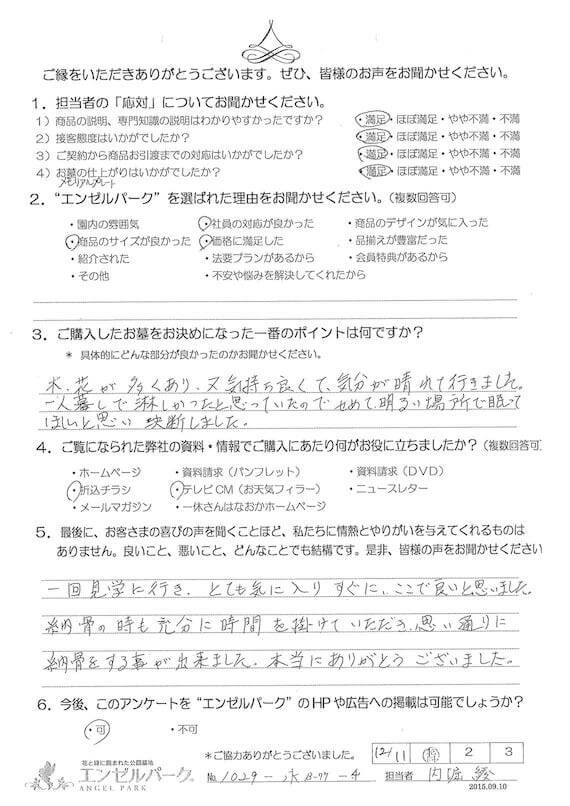 ご縁をいただきありがとうございます。ぜひ、皆様のお声をお聞かせください。
1．担当者の「応対」についてお聞かせください。
1）商品の説明、専門知識の説明はわかりやすかったですか？ ・満足・ほぼ満足・やや不満・不満
2）接客態度はいかがでしたか？ ・満足・ほぼ満足・やや不満・不満
3）ご契約から商品お引渡までの対応はいかがでしたか？ ・満足・ほぼ満足・やや不満・不満
4）お墓の仕上がりはいかがでしたか？ ・満足・ほぼ満足・やや不満・不満
メモリアルプレート
2．“エンゼルパーク”を選ばれた理由をお聞かせください。（複数回答可）
・園内の雰囲気 ・社員の対応が良かった ・商品のデザインが気に入った
・商品のサイズが良かった ・価格に満足した ・品揃えが豊富だった
・紹介された ・法要プランがあるから ・会員特典があるから
・その他 ・不安や悩みを解決してくれたから
3．ご購入したお墓をお決めになった一番のポイントは何ですか？
＊ 具体的にどんな部分が良かったのかお聞かせください。
木、花が多くあり、又気持ち良くて、気分が晴れて行きました。
一人暮しで淋しかったと思っていたのでせめて、明るい場所で眠って
ほしいと思い 決断しました。
4．ご覧になられた弊社の資料・情報でご購入にあたり何がお役に立ちましたか？（複数回答可）
・ホームページ ・資料請求（パンフレット） ・資料請求（DVD）
・折込チラシ ・テレビCM（お天気フィラー） ・ニュースレター
・メールマガジン ・一休さんはなおかホームページ
5．最後に、お客さまの喜びの声を聞くことほど、私たちに情熱とやりがいを与えてくれるものは
ありません。良いこと、悪いこと、どんなことでも結構です。是非、皆様の声をお聞かせください
一回見学に行き、とても気に入りすぐに、ここで良いと思いました。
納骨の時も充分に時間を掛けていただき、思い通りに
納骨をする事が出来ました。本当にありがとうございました。
6．今後、このアンケートを“エンゼルパーク”のHPや広告への掲載は可能でしょうか？
・可 ・不可
＊ご協力ありがとうございました。
12/11 2 3
花と緑に囲まれた公園墓地
エンゼルパーク®
ANGEL PARK
No. 1029-永B-77-4 担当者 内堀
2015.09.10